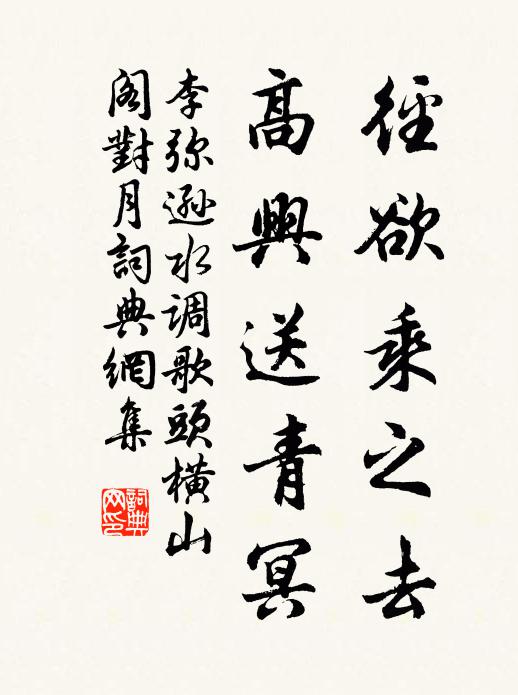 徑欲乘之去
高興送青冥
李弥遜水調歌頭橫山
閣對月詞典網集
詞典
网印